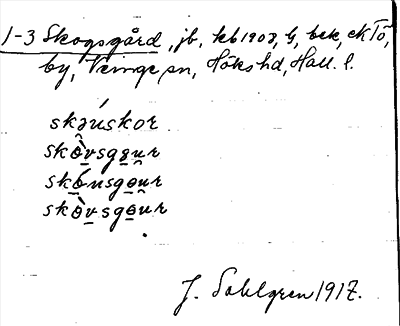 1-3 Skogsgård, jb, kb 1908, G, bek, ek Tö,
by, Veinge sn, Höks hd, Hall. l.
skǝúskor
skòvsgɵur
skóusgɵur
skòvsgɵur
J. Sahlgren 1917.